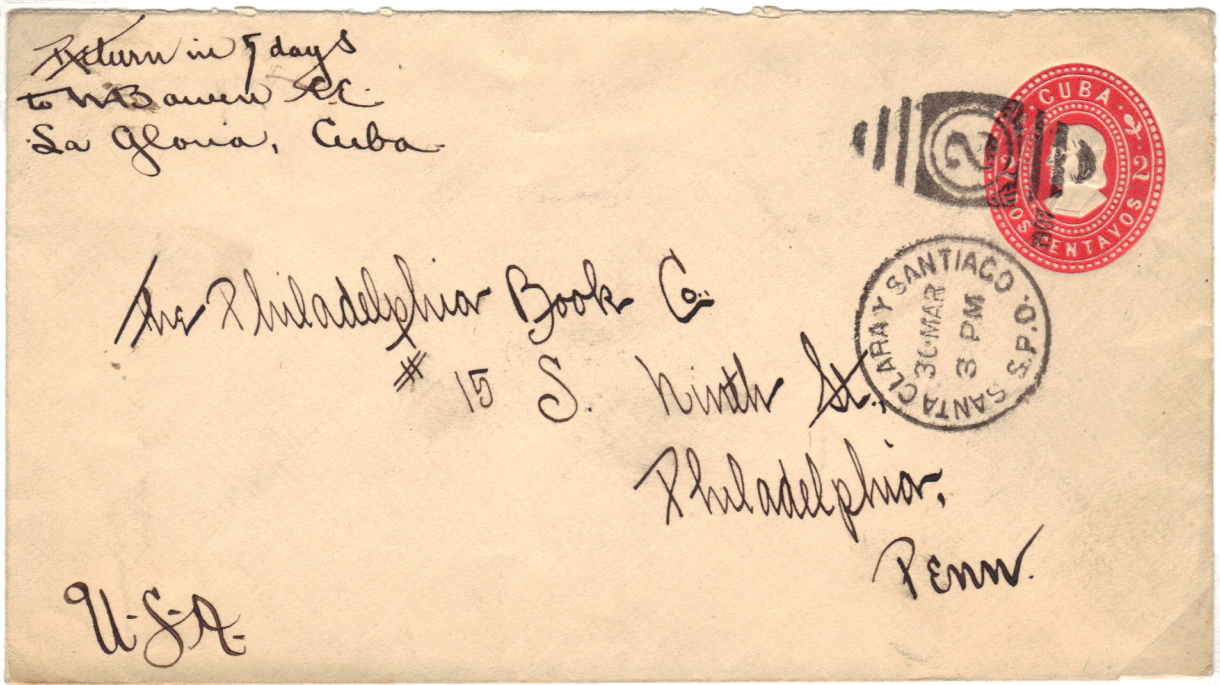 Return in 5 days
to W Bowen C.E.
La Gloria, Cuba.
CUBA
2 2
DOS CENTAVOS
2
SANTA CLARA Y SANTIAGO
30 MAR
3 PM
S.P.O.
The Philadelphia Book Co.
# 15 S. Ninth St.,
Philadelphia,
Penn.
U.S.A.